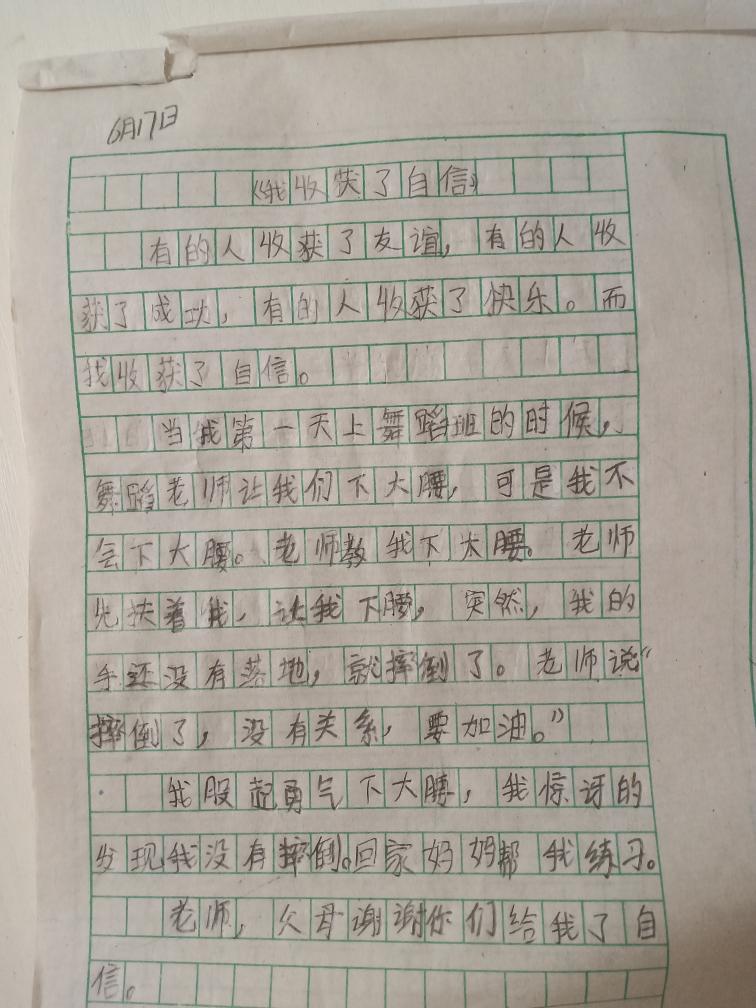 6月17日
《我收获了自信》
有的人收获了友谊，有的人收
获了成功，有的人收获了快乐。而
我收获了自信。
当我第一天上舞蹈班的时候，
舞蹈老师让我们下大腰，可是我不
会下大腰。老师教我下大腰。老师
先扶着我，让我下腰，突然，我的
手还没有落地，就摔倒了。老师说“
摔倒了，没有关系，要加油。”
我股起勇气下大腰，我惊讶的
发现我没有摔倒。回家妈妈帮我练习。
老师，父母谢谢你们给我了自
信。